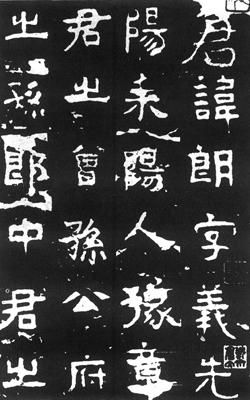 君諱朗字義先
陽耒陽人豫章
君之曾孫公府
之孫郎中君之